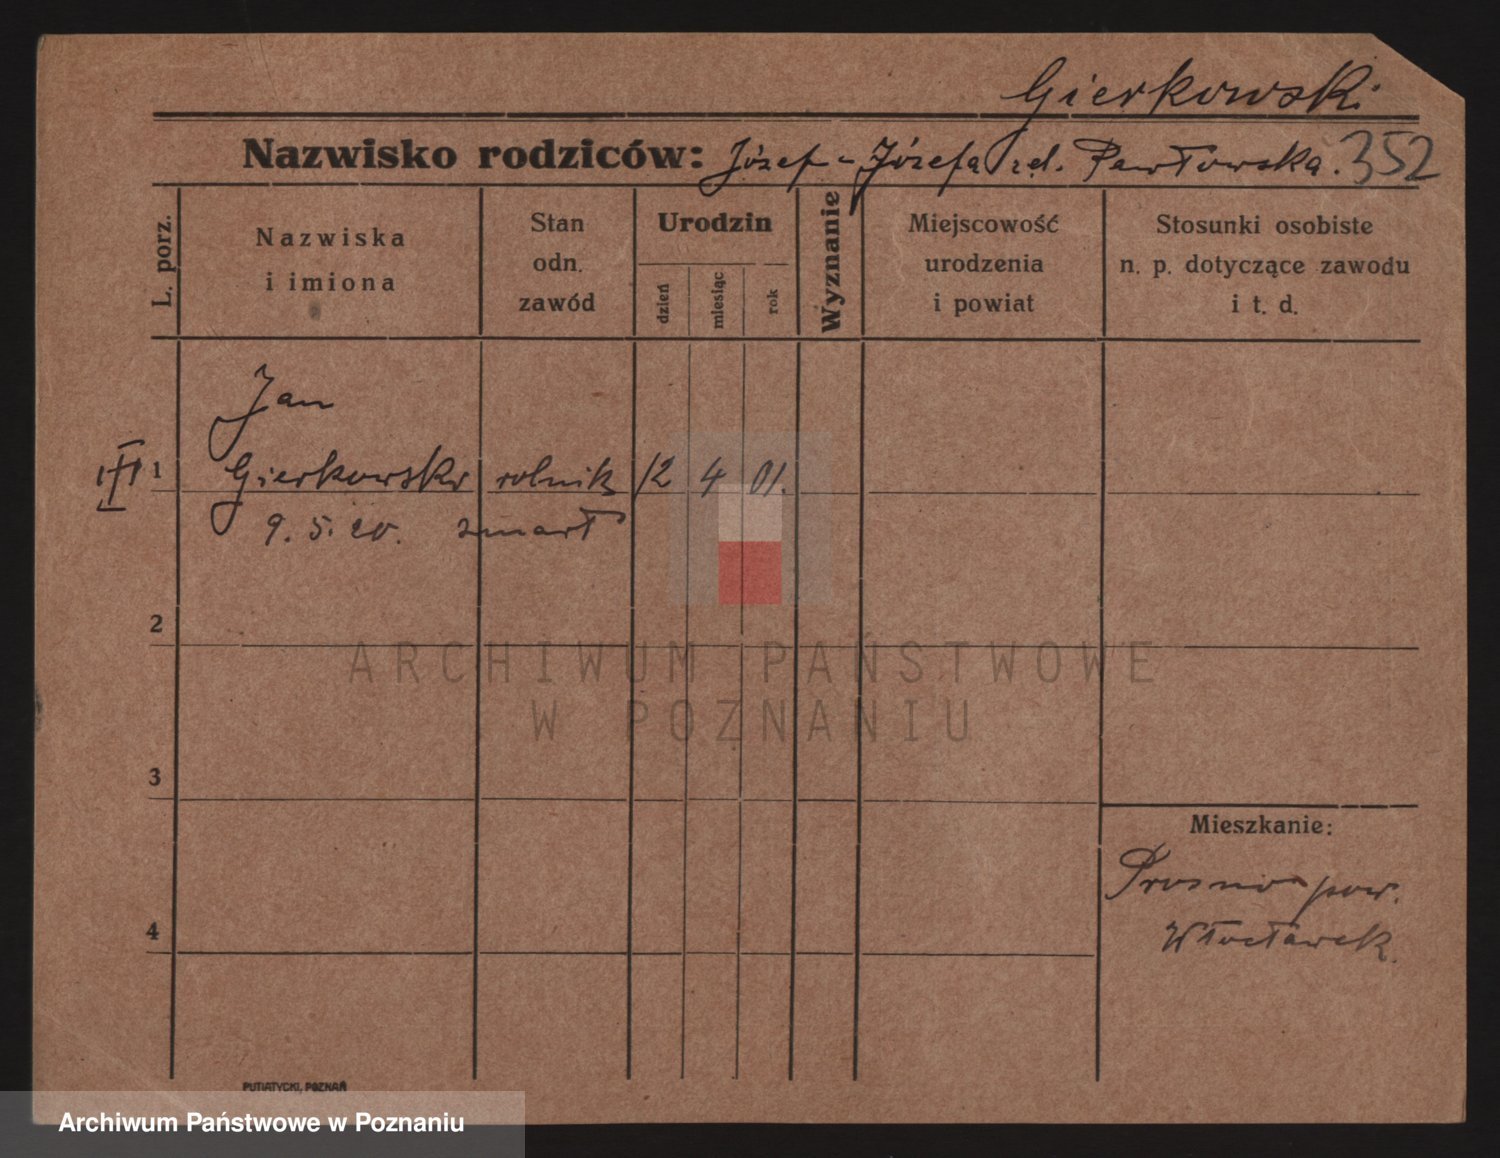 Gierkowski
Nazwisko rodziców: Józef - Józefa zd. Pawłowska. 352
L. porz.
Nazwiska
i imiona
Stan
odn.
zawód
Urodzin
dzień
miesiąc
rok
Wyznanie
Miejscowość
urodzenia
i powiat
Stosunki osobiste
n. p. dotyczące zawodu
i t. d.
Jan
1 Gierkowski rolnik 12 4 01.
9. 5. 20. zmarł
2
3
4
Mieszkanie:
pow.
Włocławek.
ARCHIWUM PAŃSTWOWE
W POZNANIU
PUTIATYCKI, POZNAŃ
Archiwum Państwowe w Poznaniu